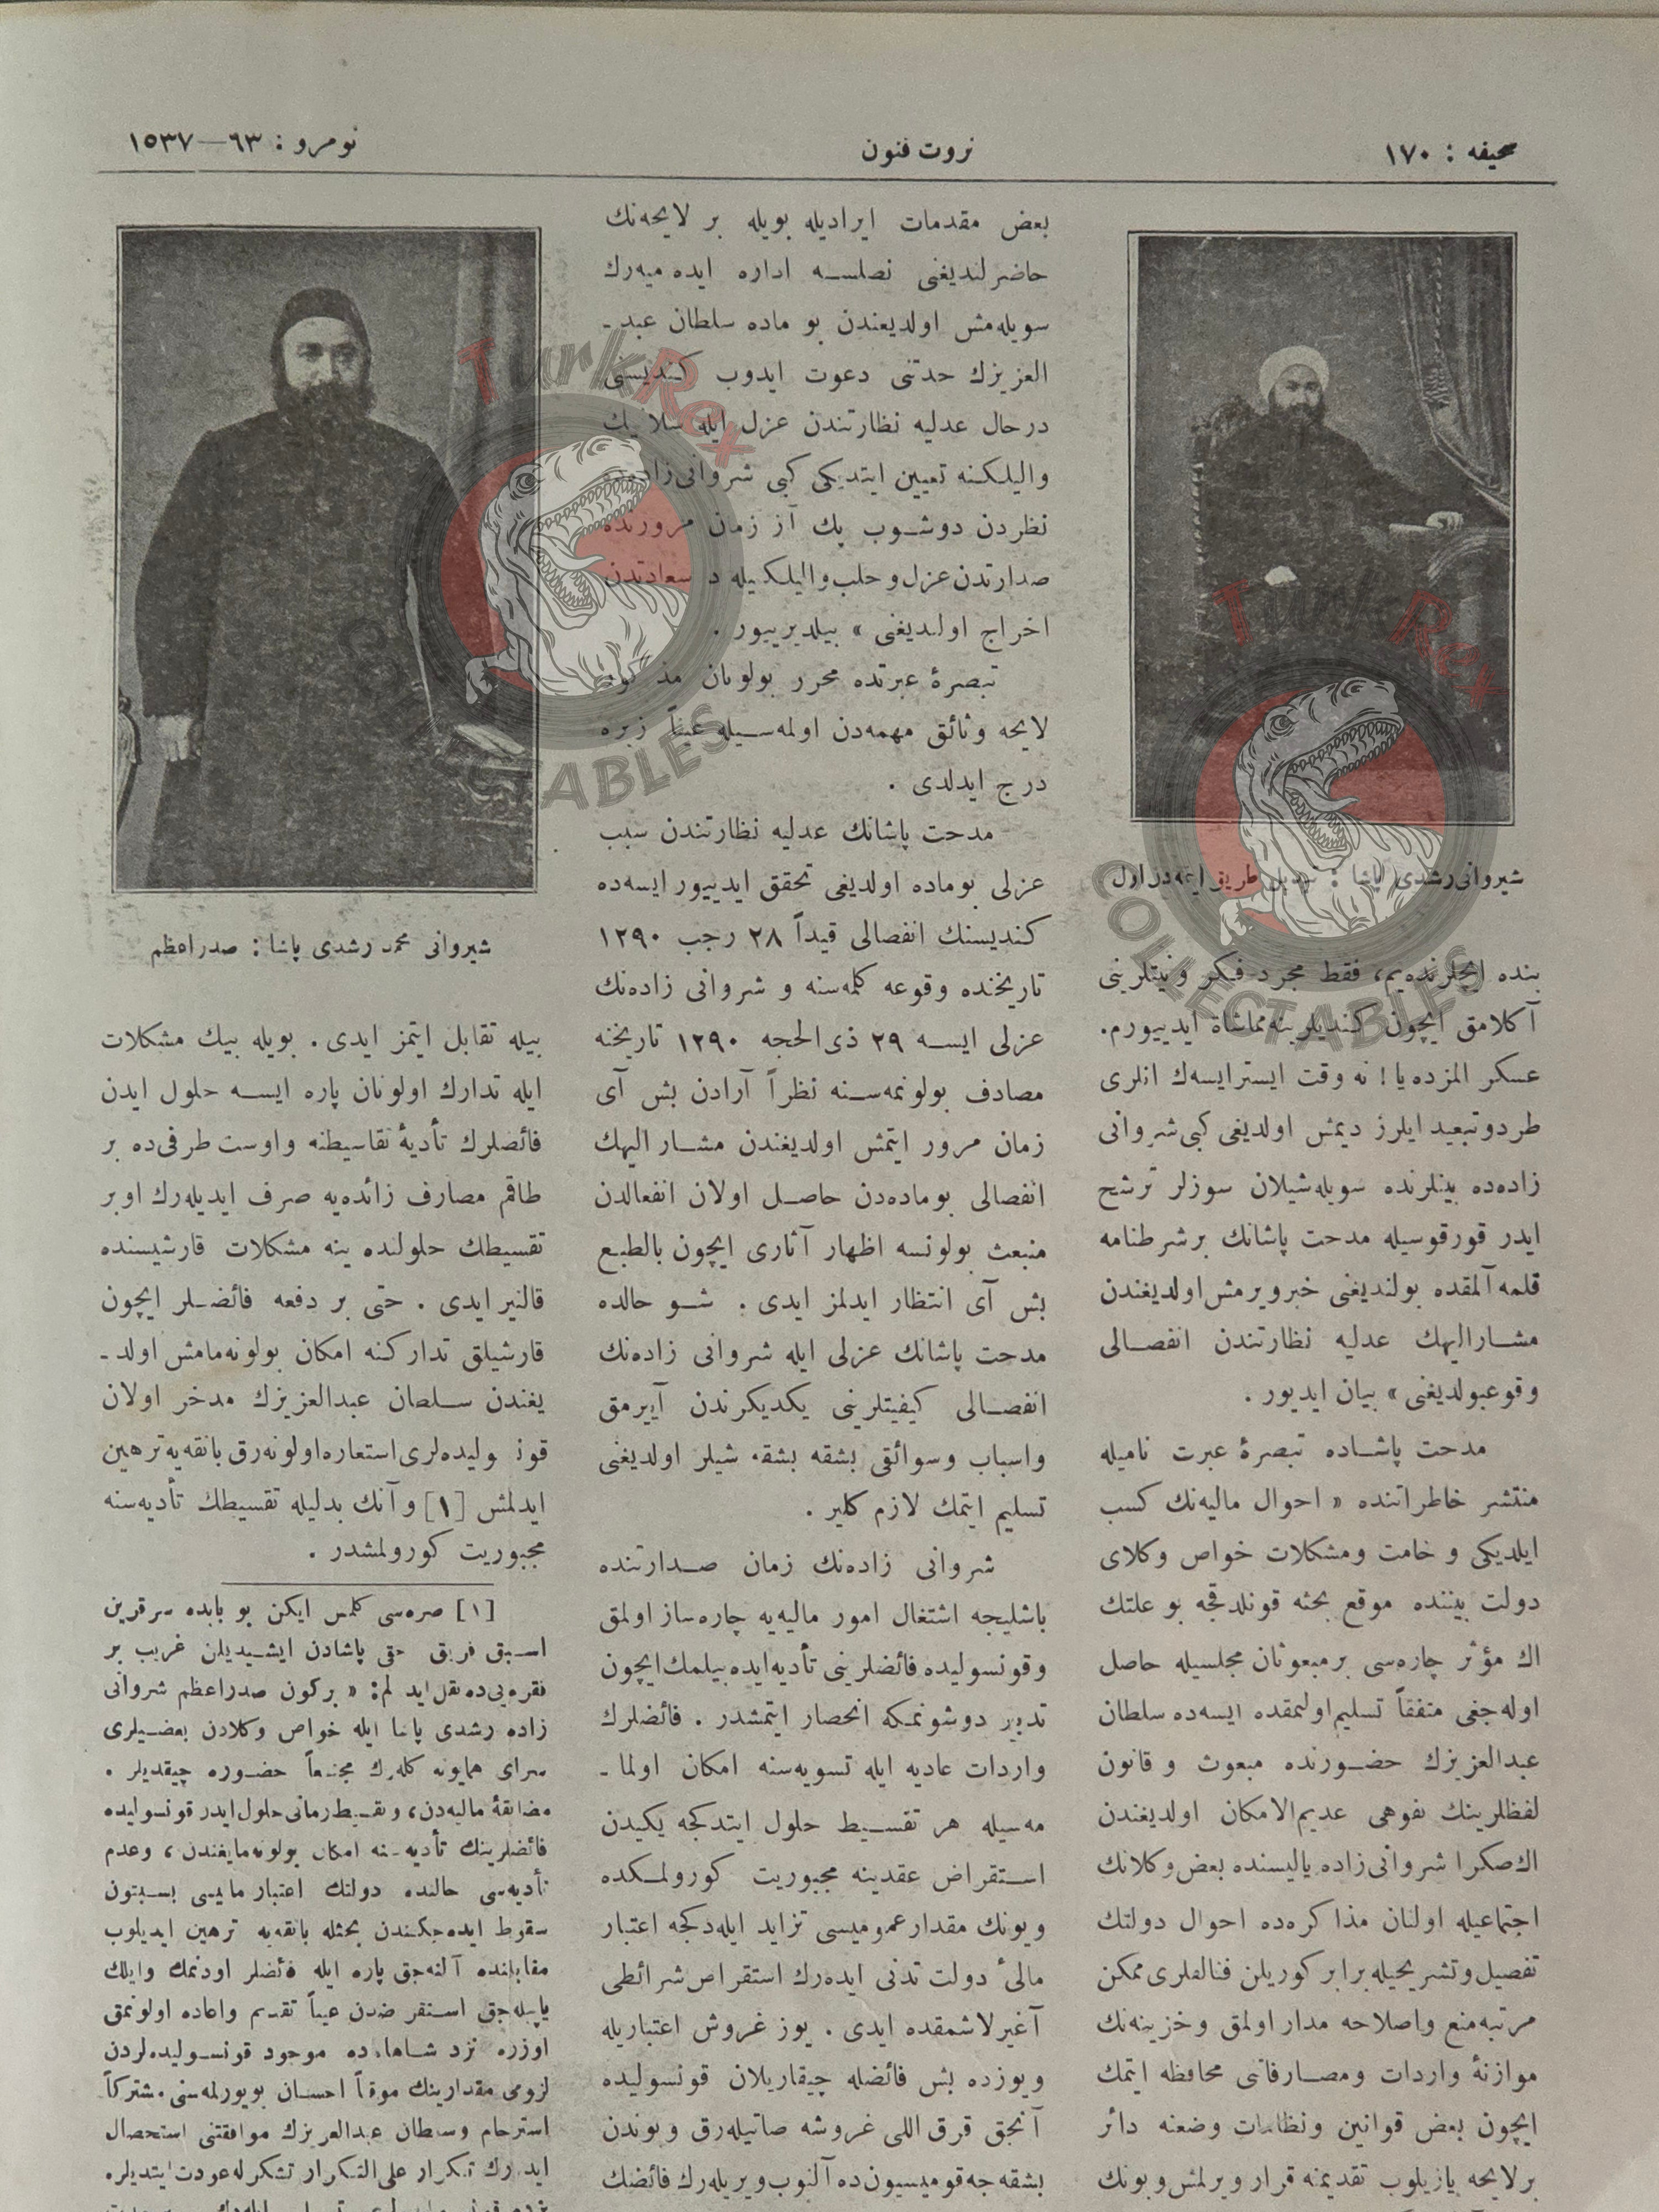 صحیفه : ١٧٠
ثروت فنون
نومرو : ٦٣—١٥٣٧
شیروانی رشدی پاشا : تبدیل طریق ایتمه‌دن اول
بنده ایچلرنده‌یم، فقط مجرد فکر ونیتلرینی
آکلامق ایچون کندیلرینه مماشاة ایدییورم.
عسکر المزده یا! نه وقت ایسترایسه‌ك انلری
طردوتبعید ایلرز دیمش اولدیغی کبی شروانی
زاده‌ده بینلرنده سویله‌شیلان سوزلر ترشح
ایدر قورقوسیله مدحت پاشانك برشرطنامه
قلمه آلمقده بولندیغنی خبرویرمش اولدیغندن
مشارالیهك عدلیه نظارتندن انفصالی
وقوعبولدیغنی » بیان ایدیور .
مدحت پاشاده تبصرۀ عبرت نامیله
منتشر خاطراتنده « احوال مالیه‌نك کسب
ایلدیکی وخامت ومشکلات خواص وکلای
دولت بیننده موقع بحثه قونلدقجه بو علتك
اك مؤثر چاره‌سی برمبعوثان مجلسیله حاصل
اوله‌جغی متفقاً تسلیم اولنمقده ایسه‌ده سلطان
عبدالعزیزك حضورنده مبعوث وقانون
لفظلرینك تفوهی عدیم‌الامکان اولدیغندن
اك‌صکرا شروانی‌زاده یالیسنده بعض وکلانك
اجتماعیله اولنان مذاکره‌ده احوال دولتك
تفصیل وتشریحیله برابر کوریلن فنالقلری ممکن
مرتبه منع واصلاحه مدار اولمق وخزینه‌نك
موازنۀ واردات ومصارفاتی محافظه ایتمك
ایچون بعض قوانین ونظامات وضعنه دائر
برلایحه یازیلوب تقدیمنه قرار ویرلمش وبونك
بعض مقدمات ایرادیله بویله بر لایحه‌نك
حاضرلندیغنی نصلسه اداره ایده‌میه‌رك
سویله‌مش اولدیغندن بو ماده سلطان عبد-
العزیزك حدتنی دعوت ایدوب کندیسنی
درحال عدلیه نظارتندن عزل ایله سلانیك
والیلکنه تعیین ایتدیکی کبی شروانی‌زاده‌ده
نظردن دوشوب پك آز زمان مرورنده
صدارتدن عزل وحلب والیلکیله درسعادتدن
اخراج اولدیغنی » بیلدیرییور .
تبصرۀ عبرتده محرر بولونان مذکور
لایحه وثائق مهمه‌دن اولمه‌سیله عیناً زیره
درج ایدلدی .
مدحت پاشانك عدلیه نظارتندن سبب
عزلی بوماده اولدیغی تحقق ایدییور ایسه‌ده
کندیسنك انفصالی قیداً ٢٨ رجب ١٢٩٠
تاریخنده وقوعه کلمه‌سنه و شروانی زاده‌نك
عزلی ایسه ٢٩ ذی‌الحجه ١٢٩٠ تاریخنه
مصادف بولونمه‌سنه نظراً آرادن بش آی
زمان مرور ایتمش اولدیغندن مشارالیهك
انفصالی بوماده‌دن حاصل اولان انفعالدن
منبعث بولونسه اظهار آثاری ایچون بالطبع
بش آی انتظار ایدلمز ایدی . شو حالده
مدحت پاشانك عزلی ایله شروانی زاده‌نك
انفصالی کیفیتلرینی یکدیکرندن آییرمق
واسباب وسوائقی بشقه بشقه شیلر اولدیغنی
تسلیم ایتمك لازم کلیر .
شروانی زاده‌نك زمان صدارتنده
باشلیجه اشتغال امور مالیه‌یه چاره‌ساز اولمق
وقونسولیده فائضلرینی تأدیه‌ایده‌بیلمك‌ایچون
تدبیر دوشونمکه انحصار ایتمشدر . فائضلرك
واردات عادیه ایله تسویه‌سنه امکان اولما-
مه‌سیله هر تقسیط حلول ایتدکجه یکیدن
استقراض عقدینه مجبوریت کورولمکده
وبونك مقدارعمومیسی تزاید ایله‌دکجه اعتبار
مالیٔ دولت تدنی ایده‌رك استقراض شرائطی
آغیرلاشمقده ایدی . یوز غروش اعتباریله
ویوزده بش فائضله چیقاریلان قونسولیده
آنجق قرق اللی غروشه صاتیله‌رق وبوندن
بشقه‌جه قومیسیون‌ده آلنوب ویریله‌رك فائضك
شیروانی محمد رشدی پاشا : صدراعظم
بیله تقابل ایتمز ایدی . بویله بیك مشکلات
ایله تدارك اولونان پاره ایسه حلول ایدن
فائضلرك تأدیۀ تقاسیطنه واوست طرفی‌ده بر
طاقم مصارف زائده‌یه صرف ایدیله‌رك اوبر
تقسیطك حلولنده ینه مشکلات قارشیسنده
قالنیر ایدی . حتی بر دفعه فائضلر ایچون
قارشیلق تدارکنه امکان بولونه‌مامش اولد-
یغندن سلطان عبدالعزیزك مدخر اولان
قونسولیده‌لری استعاره‌اولونه‌رق بانقه‌یه‌ترهین
ایدلمش [١] وآنك بدلیله تقسیطك تأدیه‌سنه
مجبوریت کورولمشدر .
[١] صره‌سی کلمش ایکن بو بابده سرقرین
اسبق فریق حقی پاشادن ایشیدیلن غریب بر
فقره‌یی‌ده نقل ایدلم: « برکون صدراعظم شروانی
زاده رشدی پاشا ایله خواص وکلادن بعضیلری
سرای همایونه کله‌رك مجتمعاً حضوره چیقدیلر .
مضایقۀ مالیه‌دن، وتقسیط‌زمانی حلول‌ایدر قونسولیده
فائضلرینك تأدیه‌سنه امکان بولونه‌مایغندن ، وعدم
تأدیه‌سی حالنده دولتك اعتبار مالیسی بسبتون
سقوط ایده‌جکندن بحثله بانقه‌یه ترهین ایدیلوب
مقابلنده آلنه‌جق پاره ایله فائضلر اودنمك وایلك
یاپیله‌جق استقرضدن عیناً تقدیم واعاده اولونمق
اوزره نزد شاهانه‌ده موجود قونسولیده‌لردن
لزومی مقدارینك موقتاً احسان بویورلمه‌سنی مشترکاً
استرحام وسلطان عبدالعزیزك موافقتنی استحصال
ایده‌رك تکرار علی‌التکرار تشکرله عودت ایتدیلر.
TurkRex
COLLECTABLES
TurkRex
COLLECTABLES